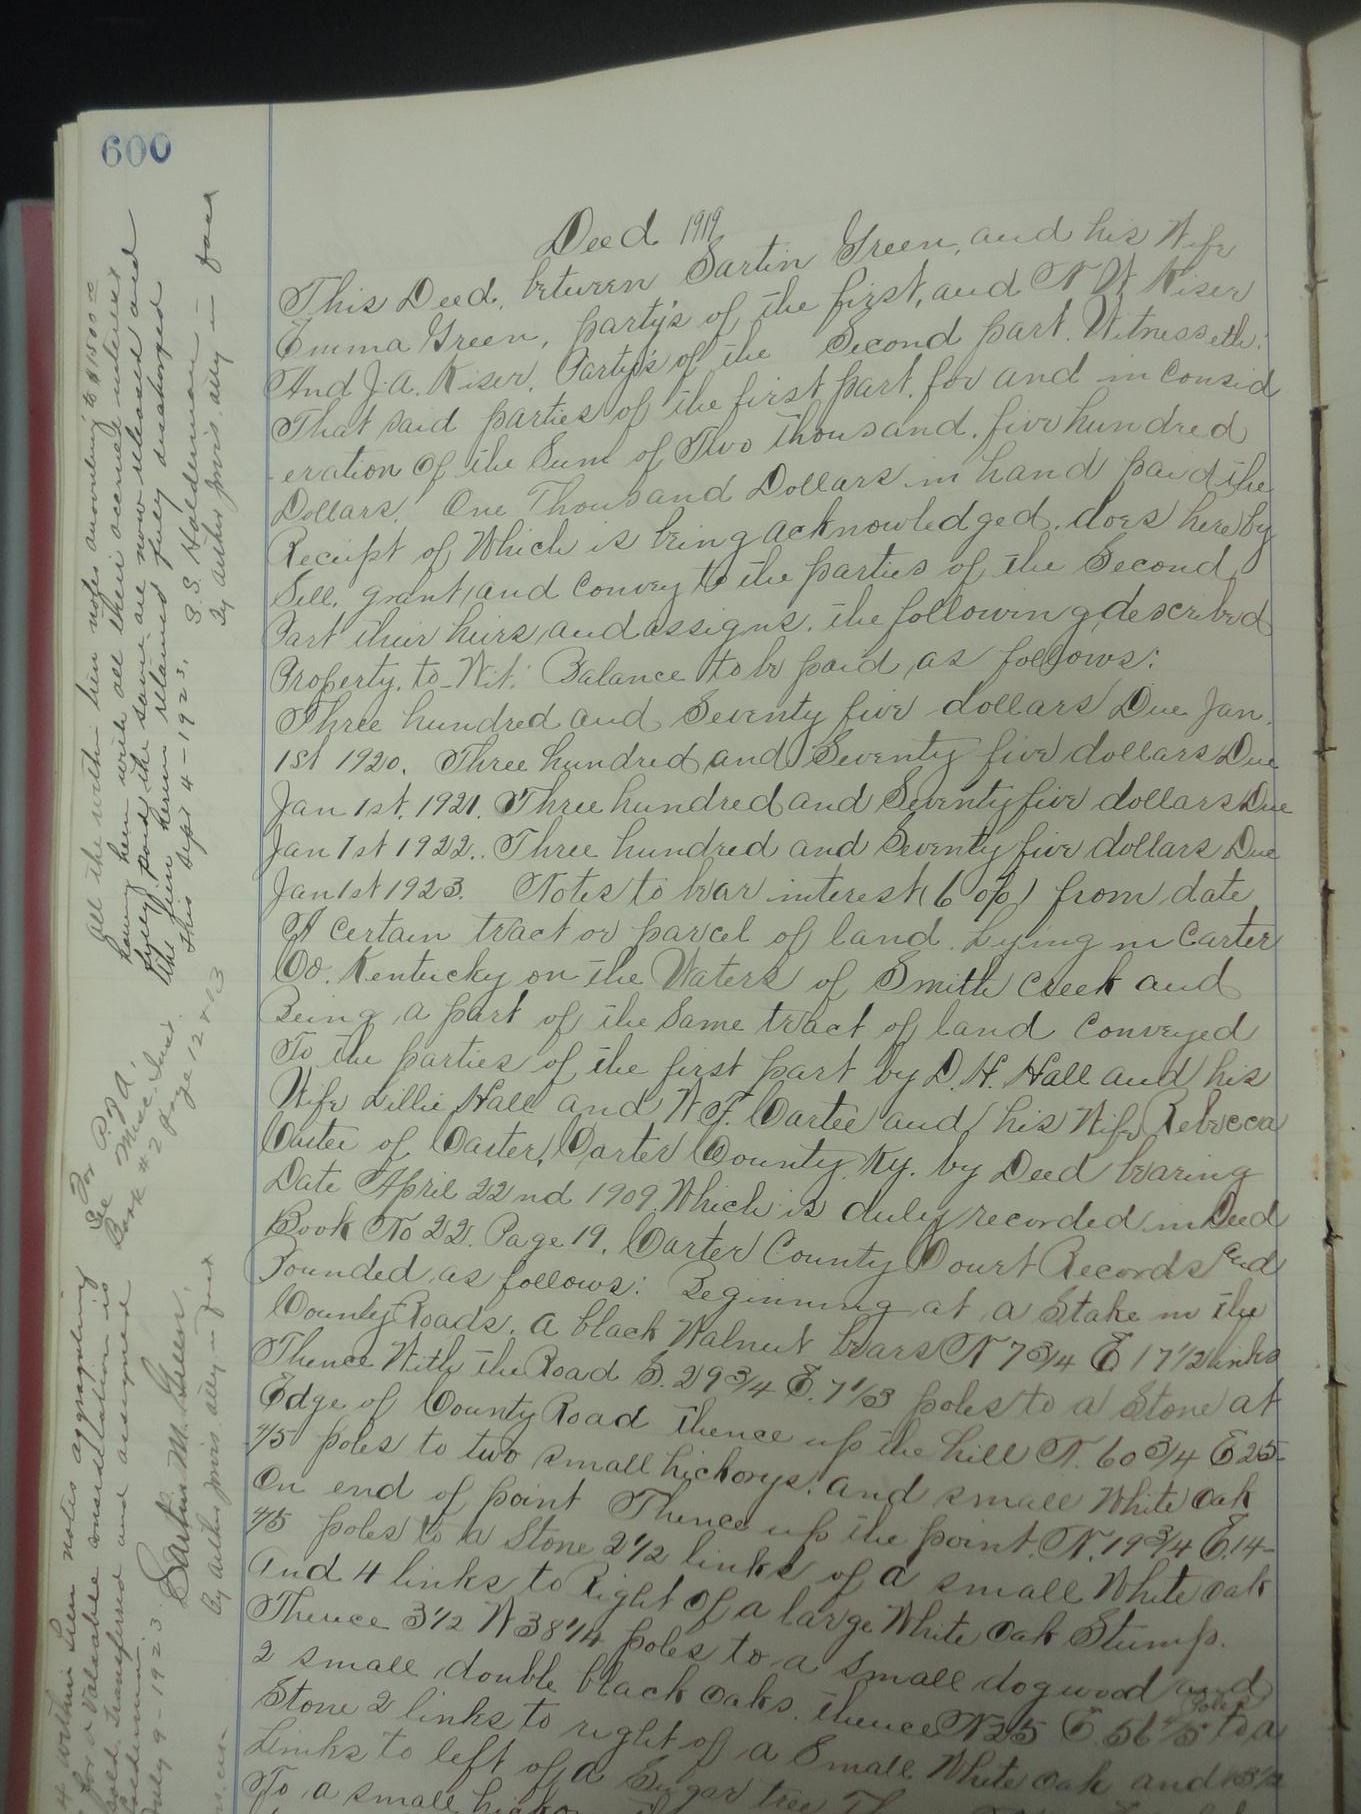 600
Deed 1919
This Deed, between Sartin Green, and his Wife
Emma Green, party's of the first, and N W Kiser
And J. A. Kiser, Party's of the Second part. Witnesseth:
That said parties of the first part, for and in Consid
-eration Of the Sum of Two thousand, five hundred
Dollars. One Thousand Dollars in hand paid the
Receipt of Which is being acknowledged, does here by
Sell, grant, and Convey to the parties of the Second
Part their heirs, and assigns, the following described
Property, to-Wit: Balance to be paid as follows:
Three hundred and Seventy five dollars Due Jan.
1st 1920. Three hundred and Seventy five dollars Due
Jan 1st, 1921. Three hundred and Seventy five dollars Due
Jan 1st 1922. Three hundred and Seventy five dollars Due
Jan 1st 1923. Notes to bear interest (6 o/o) from date
A Certain tract or parcel of land. Lying in Carter
Co. Kentucky on the Waters of Smith Creek and
Being a part of the Same tract of land Conveyed
To the parties of the first part by D. H. Hall and his
Wife Lillie Hall and W F. Cartee and his Wife Rebecca
Cartee of Carter, Carter County Ky. by Deed bearing
Date April 22nd 1909. Which is duly recorded in Deed
Book No 22. Page 19. Carter County Court Records and
Bounded as follows: Beginning at a Stake in the
County Roads. a black Walnut bears N 7 3/4 E 17 1/2 links
Thence With the Road S. 29 3/4 E. 7 1/3 poles to a Stone at
Edge of County Road thence up the hill N. 60 3/4 E 25-
4/5 poles to two small hickorys, and small White oak
On end of point Thence up the point. N. 19 3/4 E. 14-
4/5 poles to a Stone 2 1/2 links of a small White oak
And 4 links to Right Of a large White oak Stump.
Thence 3 1/2 W 38 1/4 poles to a small dogwood and
2 small double black oaks. thence N 25 E. 56 4/5 Poles to a
Stone 2 links to right of a Small White oak and
Links to left of a Sugar tree
To a small
All the within lien notes amounting to $1500 00
having been with all their accrued interest
fully paid, the same are now released and
the lien herein retained fully discharged
this Sept 4-1923. S. S. Holderman
By Arthur Jarvis atty in fact
For P. of A.
See Misc. Inst.
Book #2 page 12 & 13
4 within lien notes aggregating
for a valuable consideration is
sold transferred and assigned
Holderman
July 9-1923. Sartin M. Green.
By Arthur Jarvis atty in fact